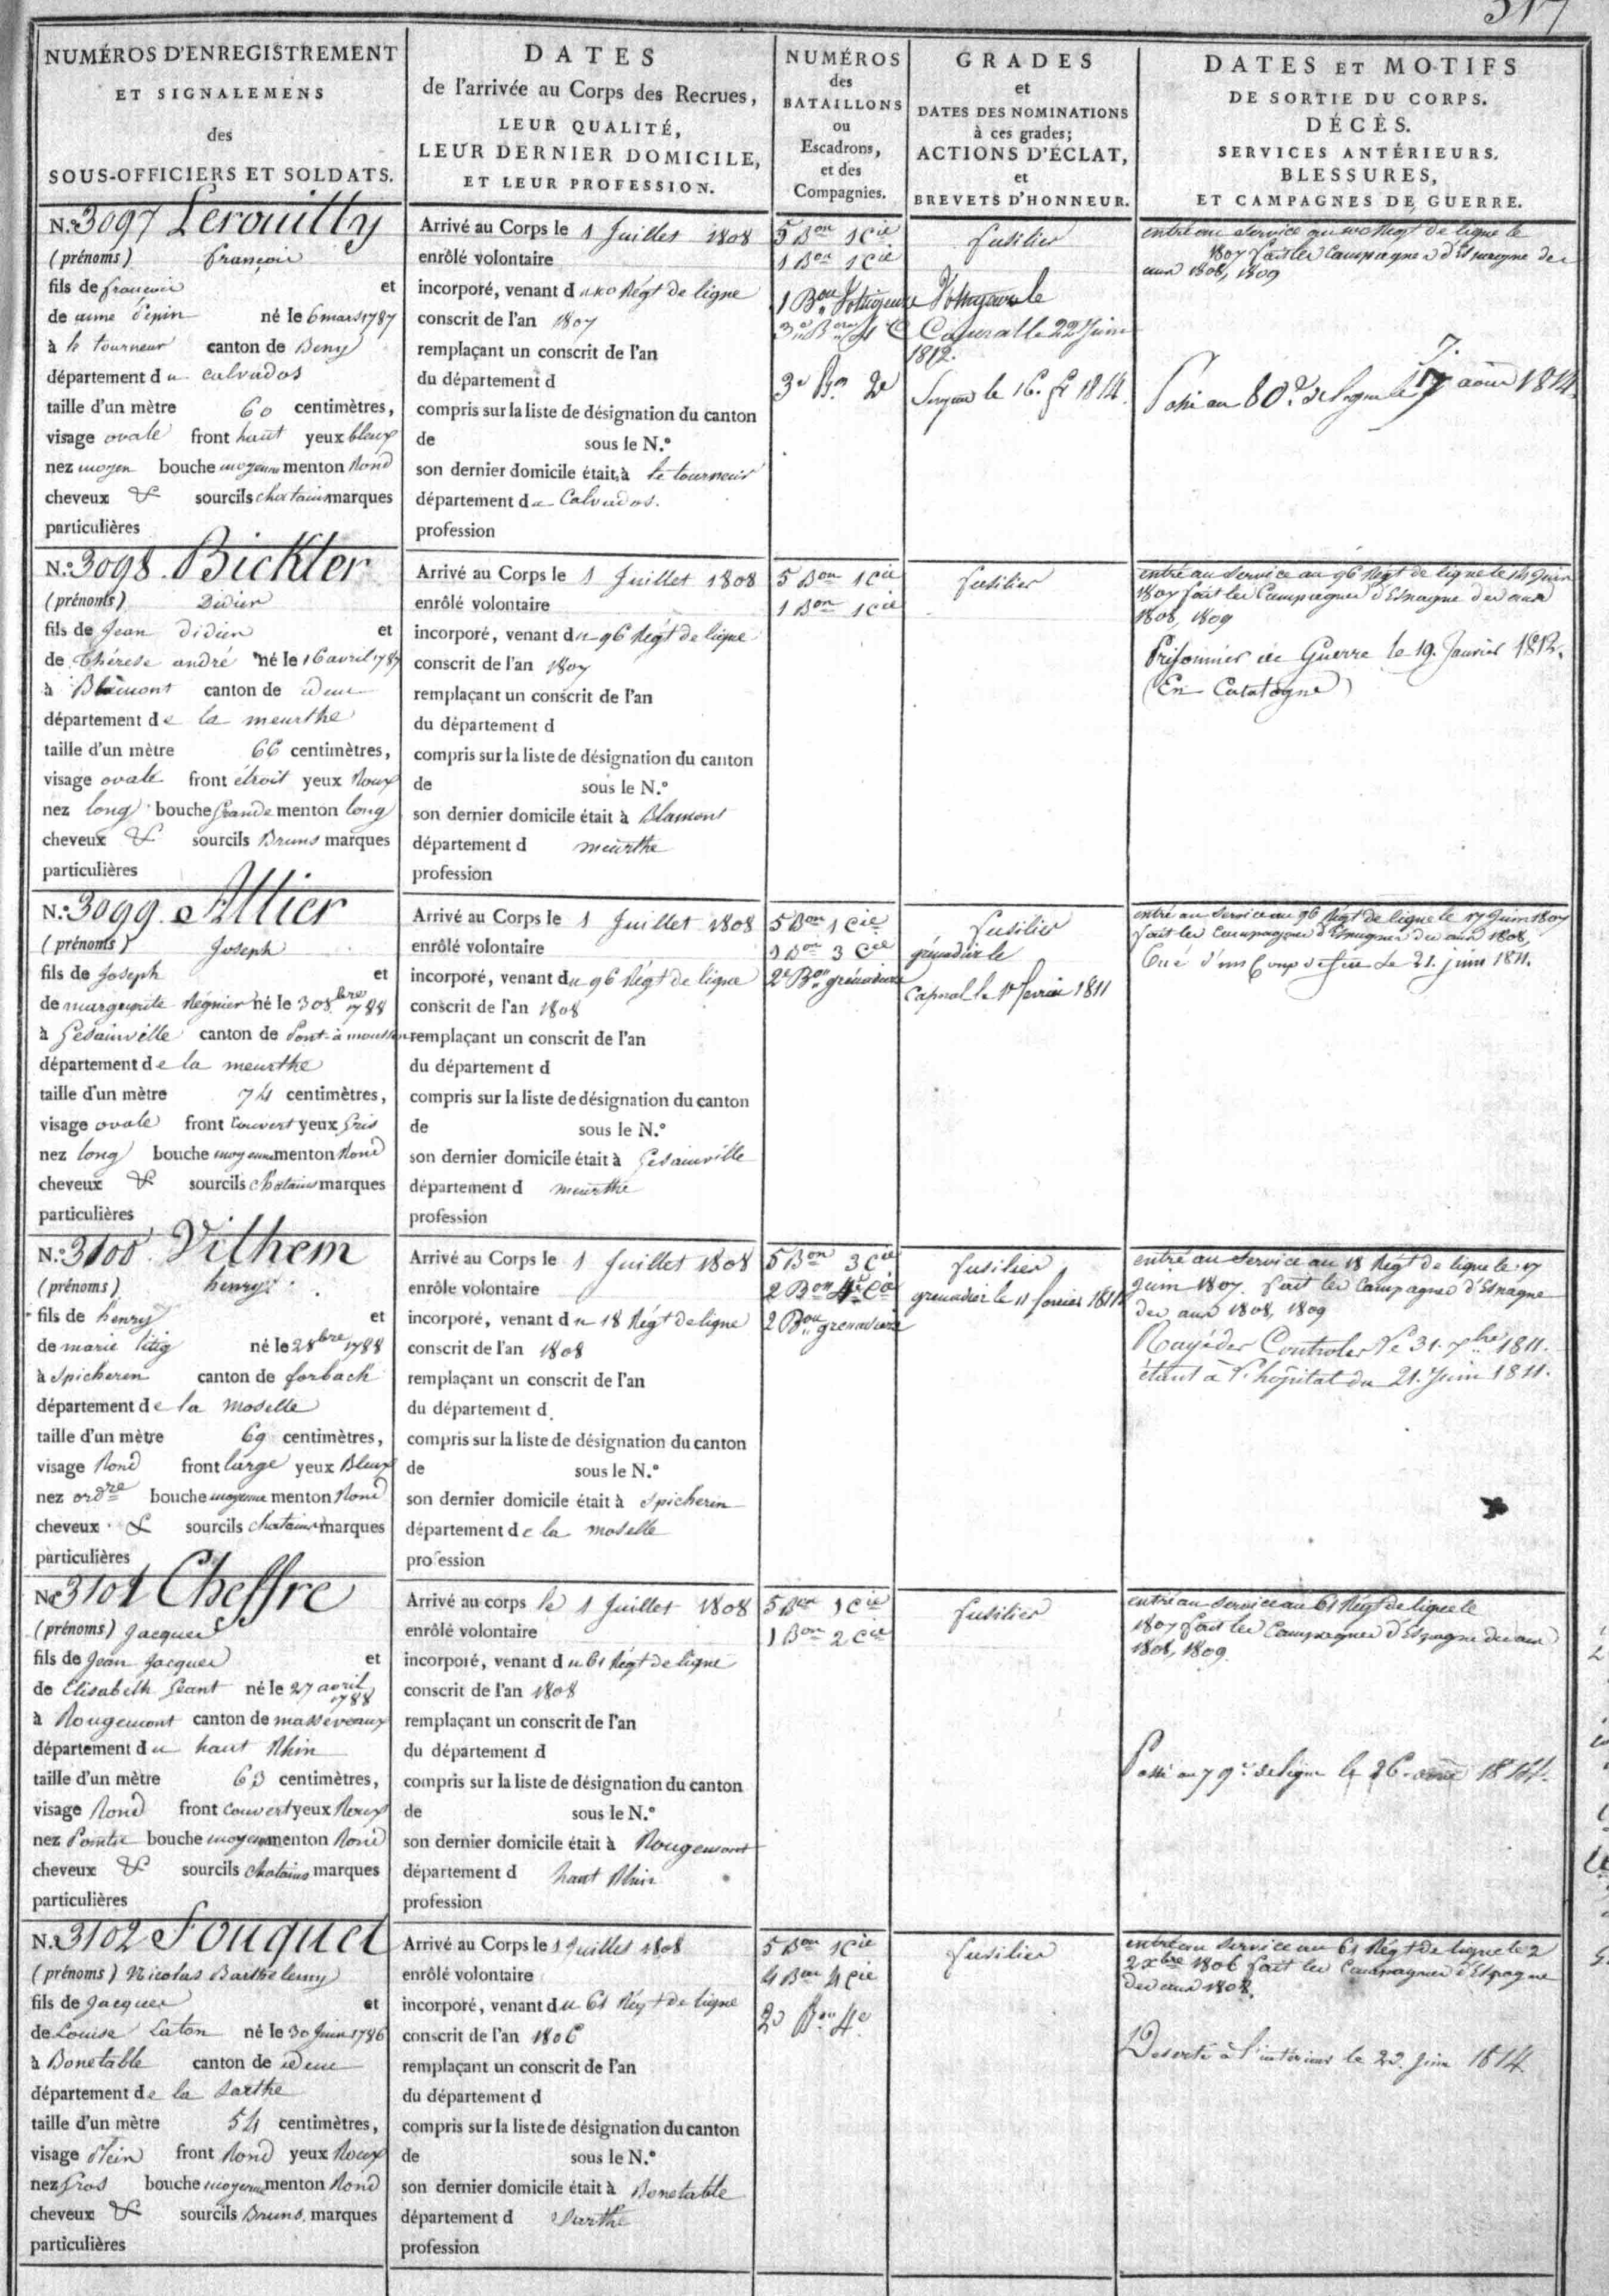 317
NUMÉROS D'ENREGISTREMENT
ET SIGNALEMENS
des
SOUS-OFFICIERS ET SOLDATS.
DATES
de l'arrivée au Corps des Recrues,
LEUR QUALITÉ,
LEUR DERNIER DOMICILE,
ET LEUR PROFESSION.
NUMÉROS
des
BATAILLONS
ou
Escadrons,
et des
Compagnies.
GRADES
et
DATES DES NOMINATIONS
à ces grades;
ACTIONS D'ÉCLAT,
et
BREVETS D'HONNEUR.
DATES ET MOTIFS
DE SORTIE DU CORPS.
DÉCÈS.
SERVICES ANTÉRIEURS.
BLESSURES,
ET CAMPAGNES DE GUERRE.
N.o 3097 Lerouilly
(prénoms) françois
fils de françois et
de anne Pepin né le 6 mars 1787
à le tourneur canton de Beny
département du calvados
taille d'un mètre 60 centimètres,
visage ovale front haut yeux bleux
nez moyen bouche moyenne menton Rond
cheveux & sourcils chatains marques
particulières
Arrivé au Corps le 1 Juillet 1808
enrôlé volontaire
incorporé, venant du Régt de ligne
conscrit de l'an 1807
remplaçant un conscrit de l'an
du département d
compris sur la liste de désignation du canton
de sous le N.o
son dernier domicile était à le tourneur
département du Calvados.
profession
5 Bon 1 Cie
1 Bon 1 Cie
1 Bon Voltigeurs
3e Bon 2e
fusilier
Voltigeur le
Caporal le 22 Juin
1812.
Sergent le 16. 1814.
entré au service au Régt de ligne le
1807 fait les Campagnes d'Espagne des
ans 1808, 1809
Passé au 80e de ligne le 7 aout 1814.
N.o 3098. Bickler
(prénoms) Didier
fils de Jean Didier et
de thérese andré né le 16 avril 1787
à Blamont canton de idem
département de la meurthe
taille d'un mètre 66 centimètres,
visage ovale front étroit yeux Roux
nez long bouche Grande menton long
cheveux & sourcils Bruns marques
particulières
Arrivé au Corps le 1 Juillet 1808
enrôlé volontaire
incorporé, venant du 96 Régt de ligne
conscrit de l'an 1807
remplaçant un conscrit de l'an
du département d
compris sur la liste de désignation du canton
de sous le N.o
son dernier domicile était à Blamont
département d meurthe
profession
5 Bon 1 Cie
1 Bon 1 Cie
fusilier
entré au service au 96 Régt de ligne le 14 Juin
1807 fait les Campagnes d'Espagne des ans
1808, 1809
Prisonnier de Guerre le 19. Janvier 1812.
(En Catalogne)
N.o 3099. Attier
(prénoms) Joseph
fils de Joseph et
de marguerite Régnier né le 30 8bre 1788
à Gesainville canton de Pont-à mousson
département de la meurthe
taille d'un mètre 74 centimètres,
visage ovale front Couvert yeux Gris
nez long bouche moyenne menton Rond
cheveux & sourcils chatains marques
particulières
Arrivé au Corps le 1 Juillet 1808
enrôlé volontaire
incorporé, venant du 96 Régt de ligne
conscrit de l'an 1808
remplaçant un conscrit de l'an
du département d
compris sur la liste de désignation du canton
de sous le N.o
son dernier domicile était à Gesainville
département d meurthe
profession
5 Bon 1 Cie
1 Bon 3 Cie
2e Bon grenadiers
fusilier
grenadier le
Caporal le 1er fevrier 1811
entré au service au 96 Régt de ligne le 17 Juin 1807
fait les Campagnes d'Espagne des ans 1808,
Tué d'un Coup de feu le 21. juin 1811.
N.o 3100. Vilhem
(prénoms) henry
fils de henry et
de marie litig né le 2 8bre 1788
à Spicheren canton de forbach
département de la moselle
taille d'un mètre 69 centimètres,
visage Rond front large yeux Bleux
nez ordre bouche moyenne menton Rond
cheveux & sourcils chatains marques
particulières
Arrivé au Corps le 1 Juillet 1808
enrôle volontaire
incorporé, venant du 18 Régt de ligne
conscrit de l'an 1808
remplaçant un conscrit de l'an
du département d
compris sur la liste de désignation du canton
de sous le N.o
son dernier domicile était à Spicheren
département de la moselle
profession
5 Bon 3 Cie
2 Bon 4e Cie
2 Bon grenadiers
fusilier
grenadier le 11 fevrier 1811
entré au service au 18 Régt de ligne le 17
Juin 1807. fait les Campagnes d'Espagne
des ans 1808, 1809
Rayé des Controles le 31. 7bre 1811.
étant à l'hôpital du 21. Juin 1811.
No 3101 Cheffre
(prénoms) Jacques
fils de Jean Jacques et
de Elisabeth Geant né le 27 avril
1788
à Rougemont canton de masseveaux
département du haut Rhin
taille d'un mètre 63 centimètres,
visage Rond front Couvert yeux Roux
nez Pointu bouche moyenne menton Rond
cheveux & sourcils chatains marques
particulières
Arrivé au corps le 1 Juillet 1808
enrôlé volontaire
incorporé, venant du 61 Régt de ligne
conscrit de l'an 1808
remplaçant un conscrit de l'an
du département d
compris sur la liste de désignation du canton
de sous le N.o
son dernier domicile était à Rougemont
département d haut Rhin
profession
5 Bon 1 Cie
1 Bon 2 Cie
fusilier
entré au service au 61 Régt de ligne le
1807 fait les Campagnes d'Espagne des ans
1808, 1809.
Passé au 79e de ligne le 26 1814.
N. 3102 Fouquet
(prénoms) Nicolas Barthelemy
fils de Jacques et
de Louise Laton né le 30 Juin 1786
à Bonetable canton de idem
département de la sarthe
taille d'un mètre 54 centimètres,
visage Plein front Rond yeux Roux
nez Gros bouche moyenne menton Rond
cheveux & sourcils Bruns. marques
particulières
Arrivé au Corps le 1 Juillet 1808
enrôlé volontaire
incorporé, venant du 61 Régt de ligne
conscrit de l'an 1806
remplaçant un conscrit de l'an
du département d
compris sur la liste de désignation du canton
de sous le N.o
son dernier domicile était à Bonetable
département d Sarthe
profession
5 Bon 1 Cie
4 Bon 4 Cie
2e Bon 4e
fusilier
entré au service au 61 Régt de ligne le 2
2 Xbre 1806 fait les Campagnes d'Espagne
des ans 1808.
Deserté à l'intérieur le 22. Juin 1814.